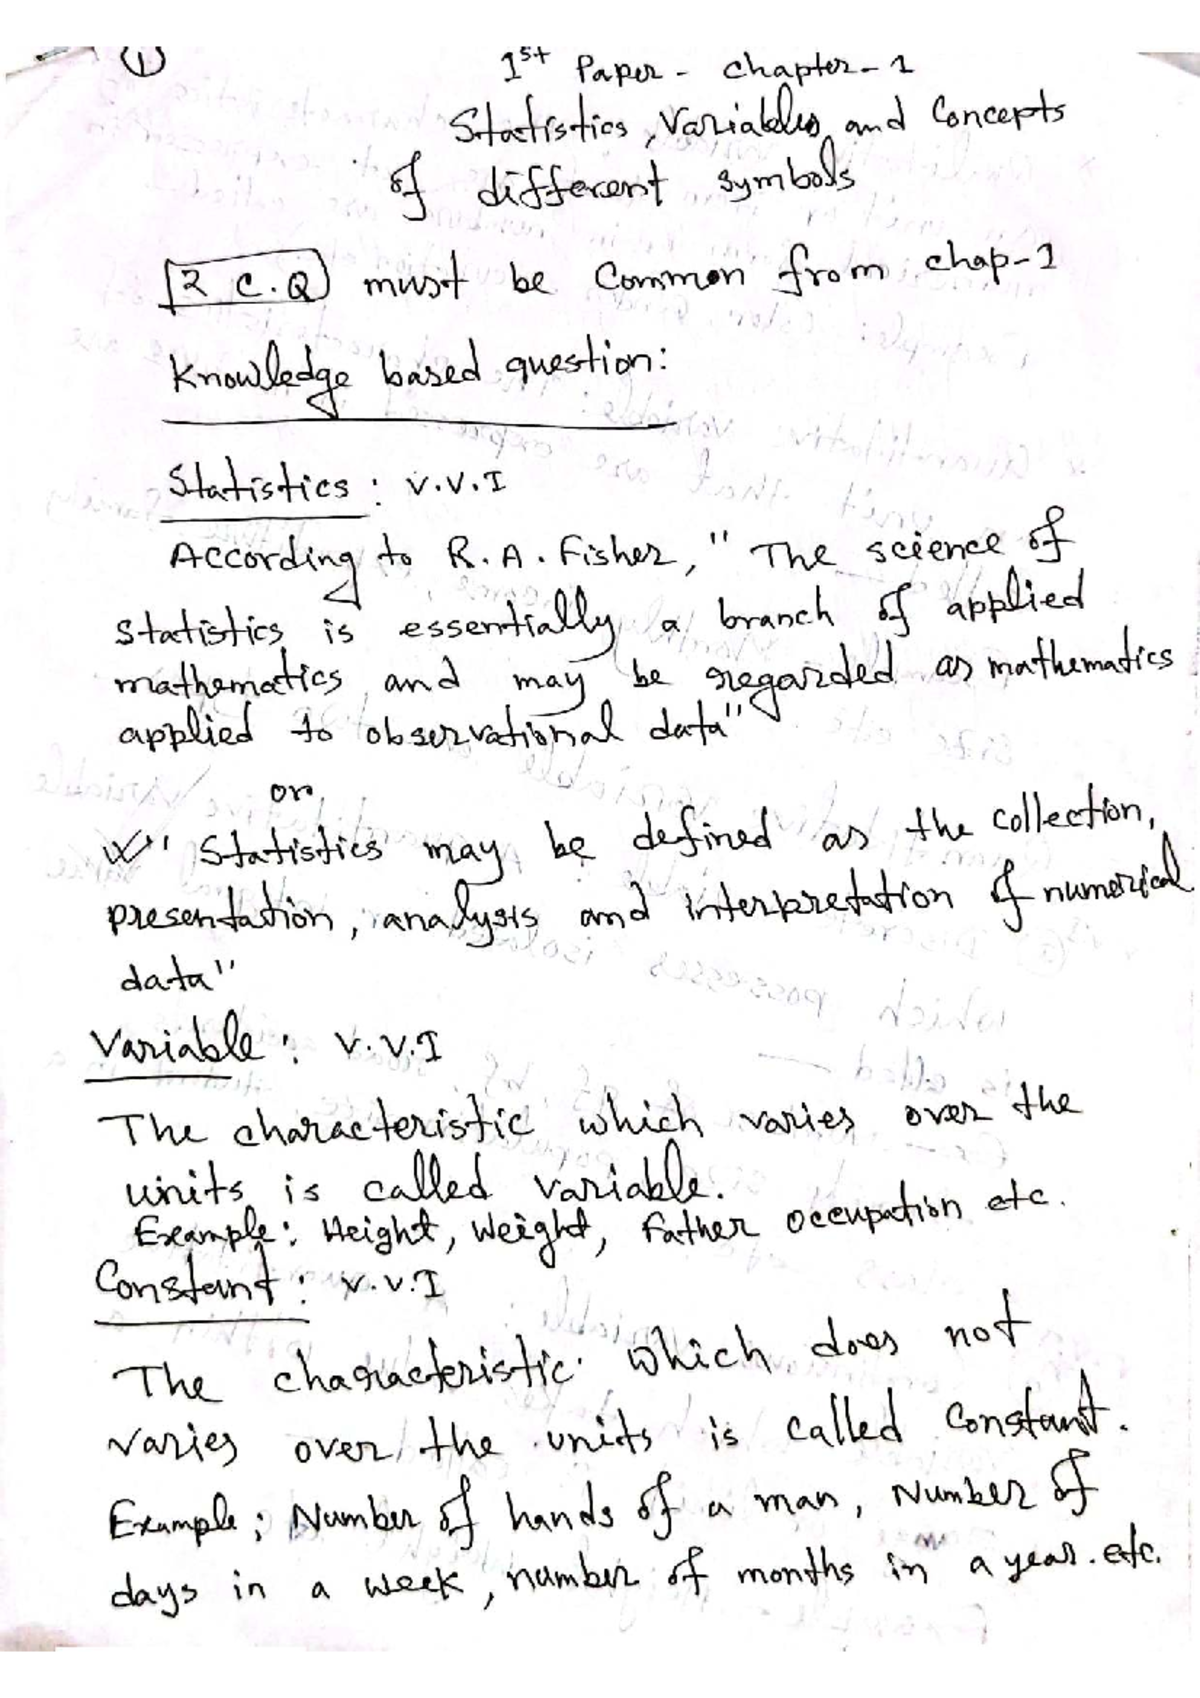 1
1st Paper - Chapter - 1
Statistics, Variables and Concepts
of different symbols
2 C.Q must be Common from chap-1
Knowledge based question:
Statistics : V.V.I
According to R.A. Fisher, " The science of
statistics is essentially a branch of applied
mathematics and may be regarded as mathematics
applied to observational data"
or,
" Statistics may be defined as the collection,
presentation, analysis and interpretation of numerical
data"
Variable : V.V.I
The characteristic which varies over the
units is called variable.
Example : Height, Weight, Father occupation etc.
Constant : V.V.I
The characteristic which does not
varies over the units is called Constant.
Example ; Number of hands of a man, Number of
days in a week, number of months in a year. etc.